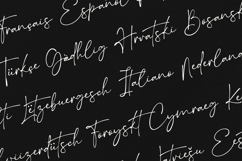 Français Español
Türkçe Gàdhlig Hrvatski Bosansk
ti Lëtzebuergesch Italiano Nederlan
wiizerdütsch Føroyskt Cymraeg K
atviešu Ees